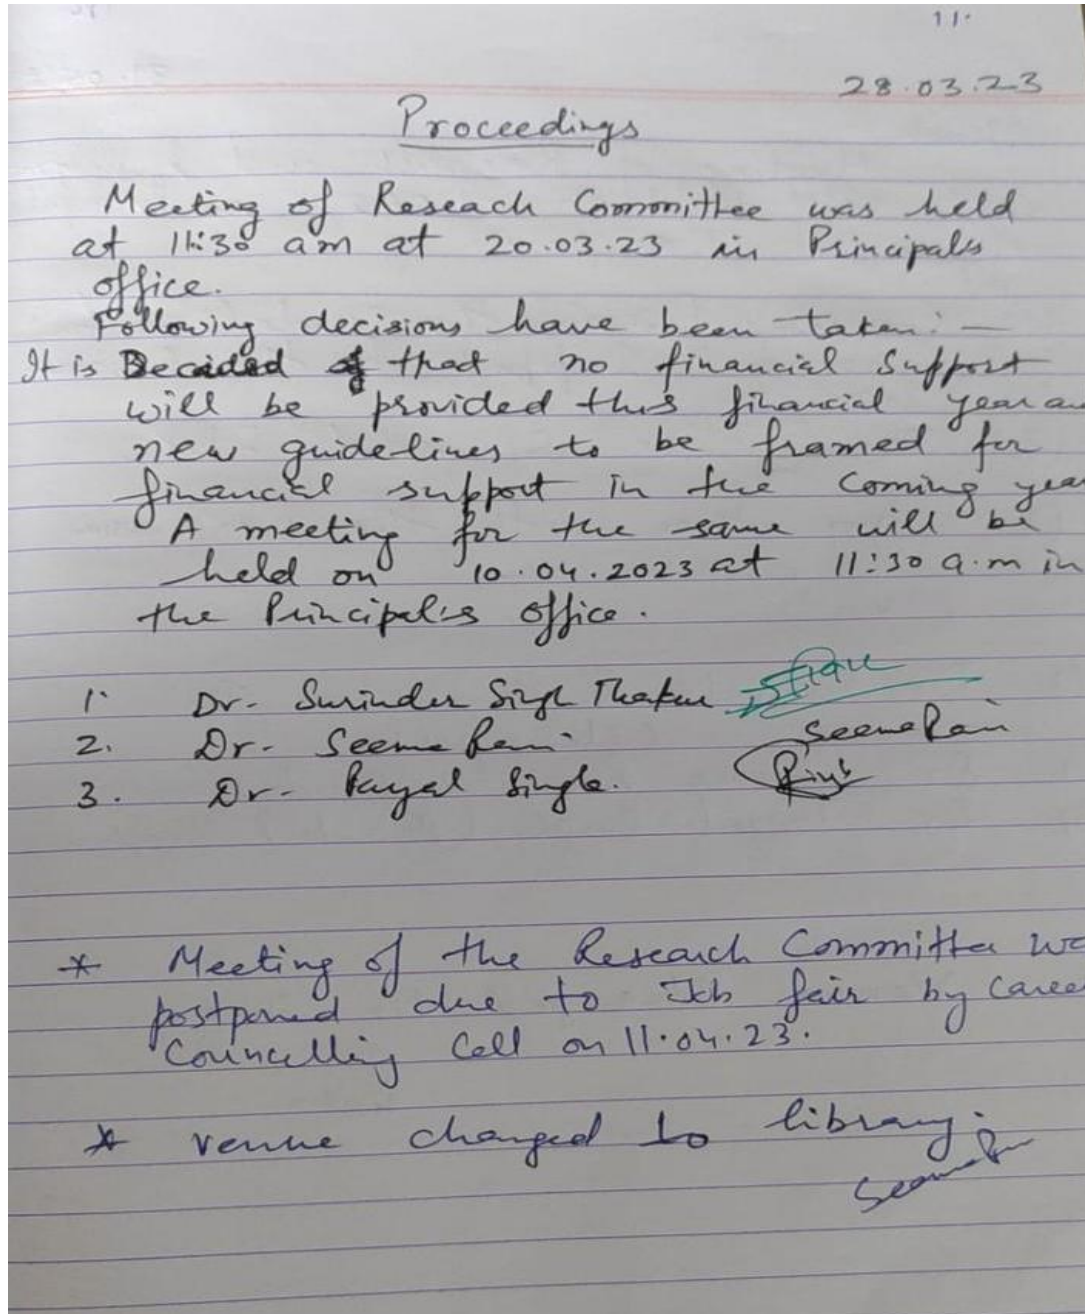 11.
28.03.23
Proceedings
Meeting of Reseach Committee was held
at 11:30 am at 20.03.23 in Principals
office.
Following decisions have been taken: —
It is Decided that no financial Support
will be provided this financial year an
new guidelines to be framed for
financial support in the coming year
A meeting for the same will be
held on 10.04.2023 at 11:30 a.m in
the Principal's office.
1. Dr. Surinder Singh Thakur
2. Dr. Seema Rani Seema Rani
3. Dr. Payal Singla.
* Meeting of the Research Committee wa
postponed due to Job fair by Caree
Councelling Cell on 11.04.23.
* venue changed to library.
Seema